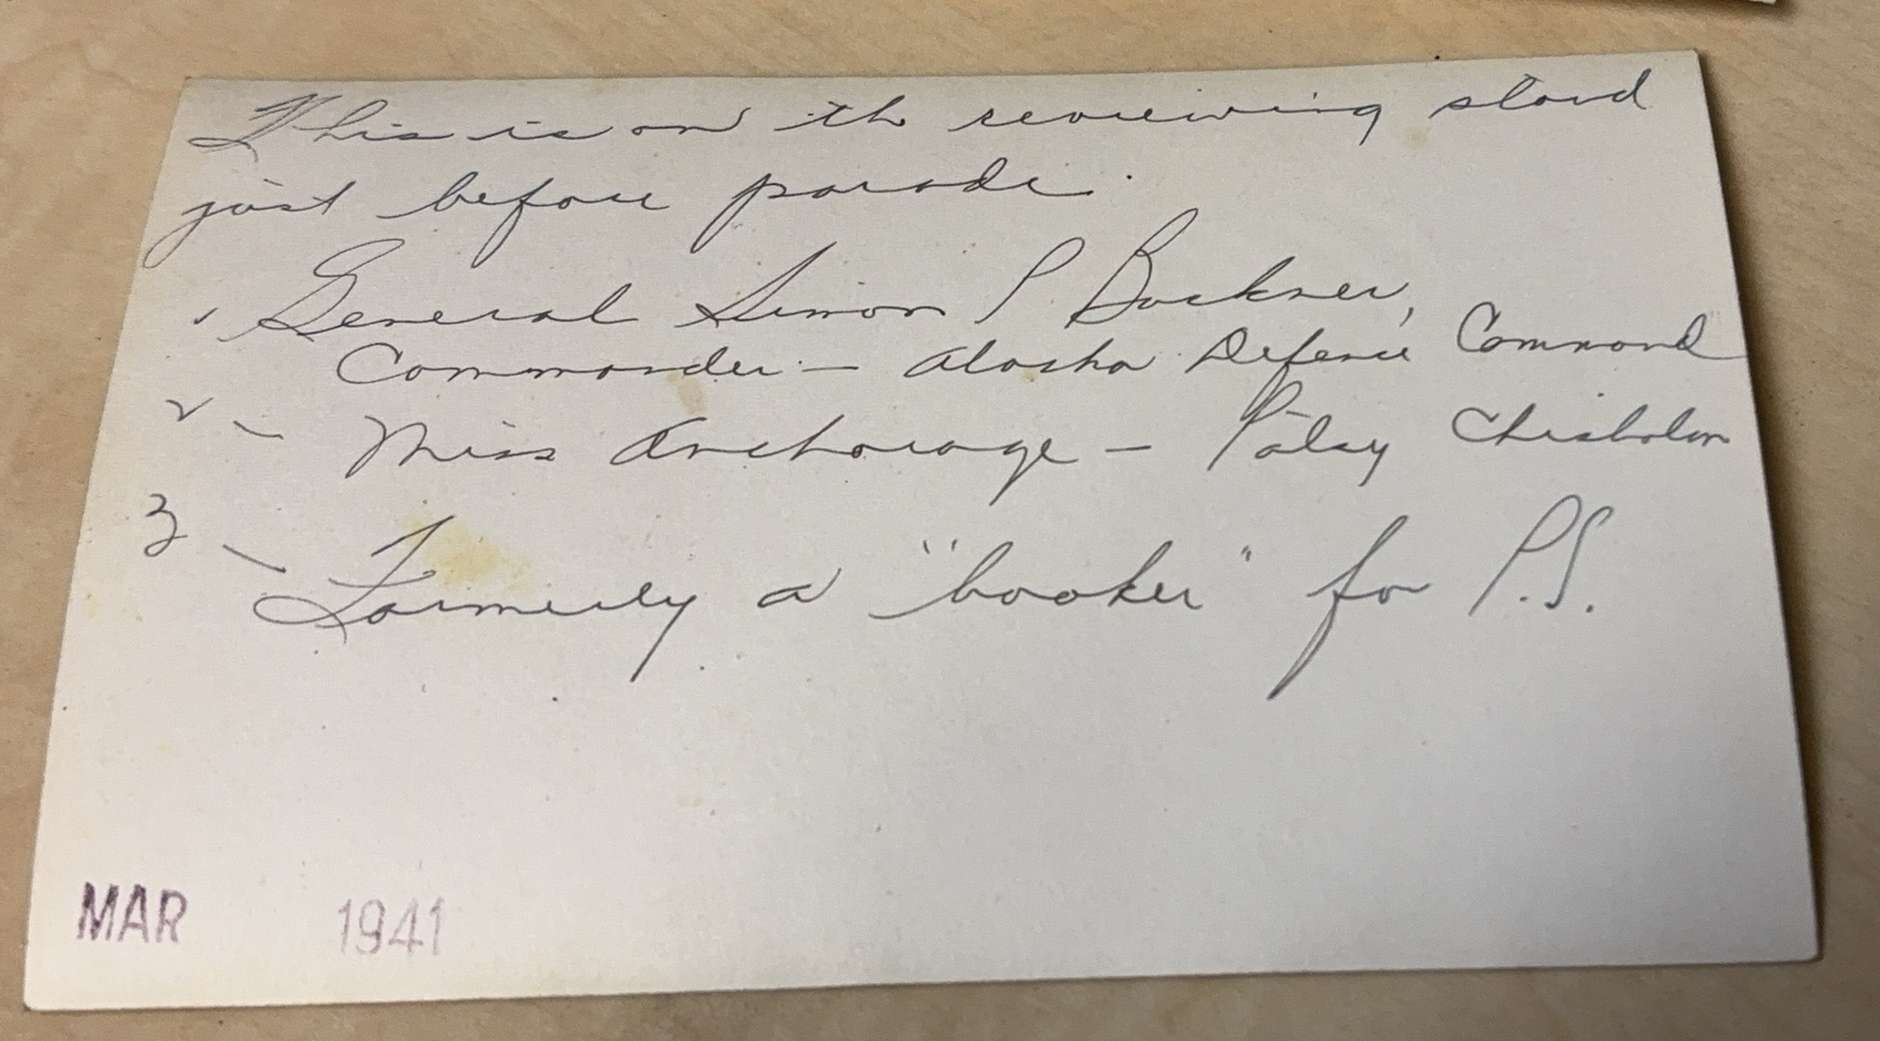 This is on th reviewing stand
just before parade.
1 General Simon P Buckner,
Commander - Alaska Defense Command
2 - Miss Anchorage - Patsy Chisholm
3 - Formerly a "booker" for P.S.
MAR 1941